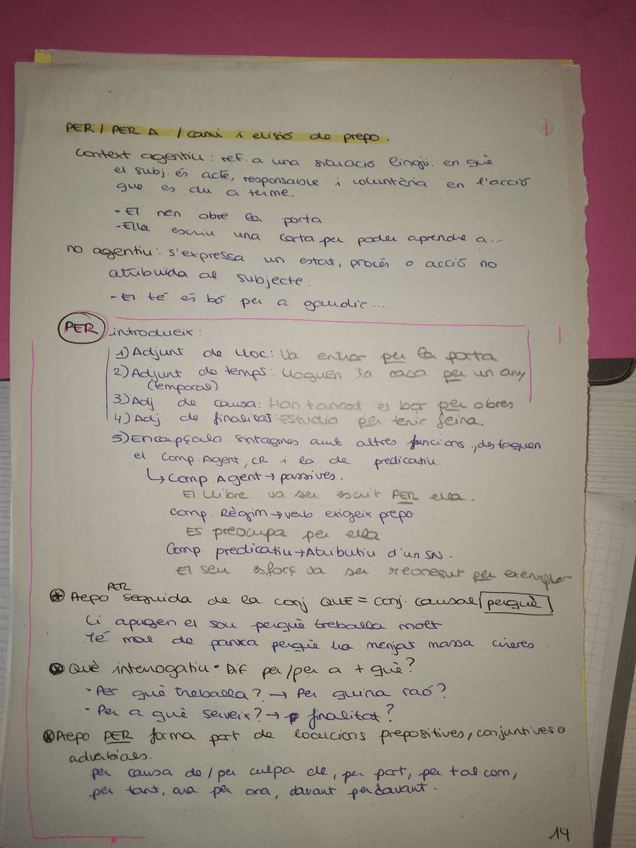 PER / PER A / canvi i elisió de prepo.
Context agentiu: ref. a una situació lingü. en què
el subj. és acte, responsable i voluntària en l'acció
que es du a terme.
- El nen obre la porta
- Ella escriu una carta per poder aprendre a...
no agentiu: s'expressa un estat, procés o acció no
atribuida al subjecte.
- El té és bó per a gaudir....
PER introdueix:
1) Adjunt de lloc: Va entrar per la porta
2) Adjunt de temps: Lloguen la casa per un any
(temporal)
3) Adj de causa: Han tancat es bar per obres
4) Adj. de finalitat: Estudia per tenir feina.
5) Encapçala sintagmes amb altres funcions, destaquen
el Comp. Agent, CR i la de predicatiu.
↳ Comp. Agent → passives.
El llibre va ser escrit PER ella.
Comp. Règim → verb exigeix prepo
ES preocupa per ella
Comp. predicatiu → Atributiu d'un SN.
El seu esforç va ser reconegut per exemplar
* Prepo PER seguida de la conj QUE = conj. causal perquè
Li apugen el sou perquè treballa molt
Té mal de panxa perquè ha menjat massa cireres.
* Què interrogatiu - Dif per/per a + què?
- Per què treballa? → Per quina raó?
- Per a què serveix? → finalitat?
* Prepo PER forma part de locucions prepositives, conjuntives o
adverbials.
per causa de / per culpa de, per part, per tal com,
per tant, ara per ara, davant per davant.
14